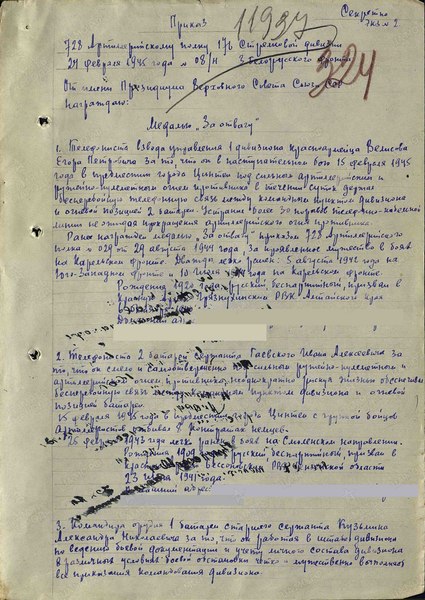 Секретно
Экз № 2
Приказ
11997
728 Артиллерийскому полку 176 Стрелковой дивизии
24 февраля 1945 года № 08/н 3 Белорусского фронта
324
От имени Президиума Верховного Совета Союза ССР
награждаю:
Медалью „За отвагу"
1. Телефониста взвода управления 1 дивизиона красноармейца
Егора Петровича за то, что он в наступательном бою 15 февраля 1945
года в предместии города Цинтен под сильным артиллерийским и
ружейно-пулеметным огнем противника в течении суток держал
бесперебойную телефонную связь между командным пунктом дивизиона
и огневой позицией 2 батареи. Устранил более 30 порывов телефонно-кабельной
линии не ожидая прекращения артиллерийского огня противника.
Ранее награжден медалью „За отвагу" приказом 728 Артиллерийского
полка № 029 от 29 августа 1944 года, за проявленное мужество в боях
на Карельском фронте. Дважды легко ранен: 5 августа 1942 года на
Юго-Западном фронте и 10 июля года на Карельском фронте.
Рождения 1920 года, русский, беспартийный, призван в
Красную РВК Алтайского края
2. Телефониста 2 батареи сержанта Гаевского Ивана Алексеевича за
то, что он смело и самоотверженно под сильным ружейно-пулеметным и
артиллерийским огнем противника, неоднократно рискуя жизнью обеспечивал
бесперебойную связь между командным пунктом дивизиона и огневой
позицией батареи.
15 февраля 1945 года в предместии города Цинтен с группой бойцов
артиллеристов отбивал 8 контратак немцев.
26 февраля 1943 года легко ранен в боях на Смоленском направлении.
Рождения 1909 года, русский, беспартийный, призван в
Красную РВК области
23 июня 1941 года.
адрес:
3. Командира орудия 1 батареи старшего сержанта Кузьмина
Александра Николаевича за то, что он работая в штабе дивизиона
по ведению боевой документации и учету личного состава дивизиона
в различных условиях боевой обстановки четко и мужественно выполнял
все приказания командования дивизиона.